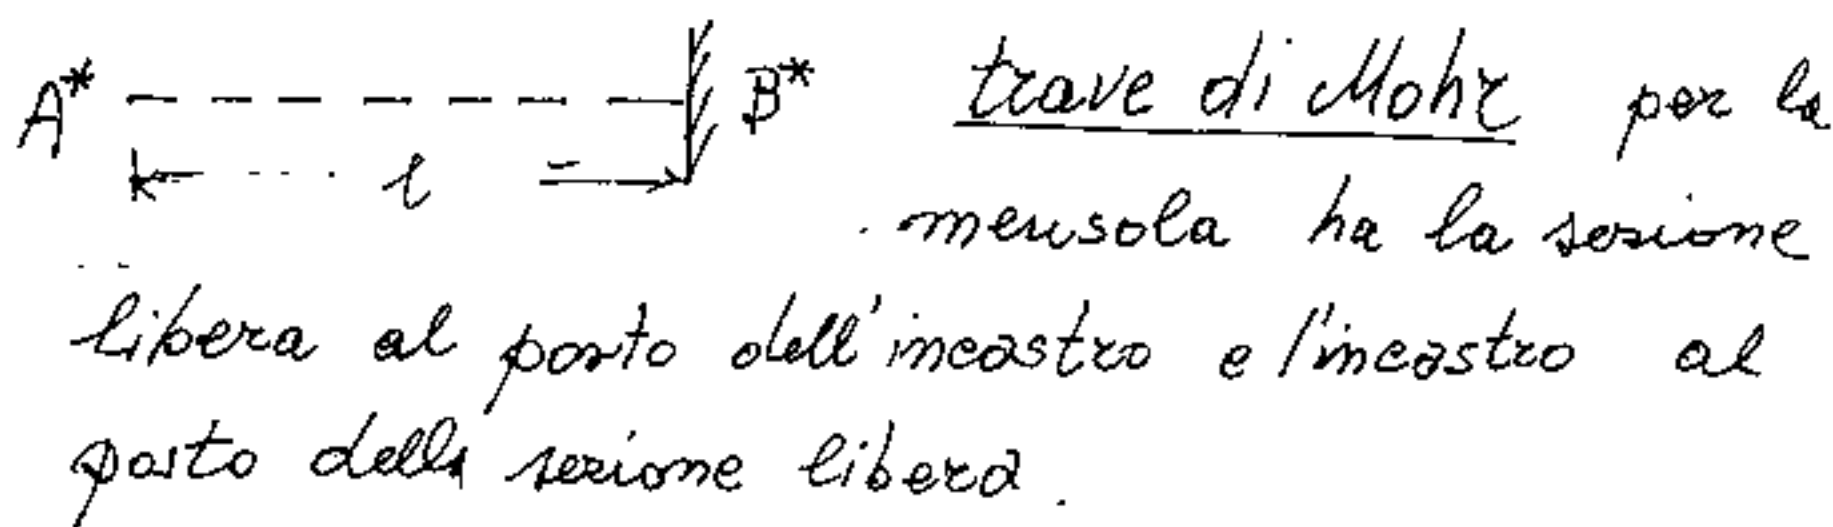 A* B* trave di Mohr per la
l
mensola ha la sezione
libera al posto dell'incastro e l'incastro al
posto della sezione libera.